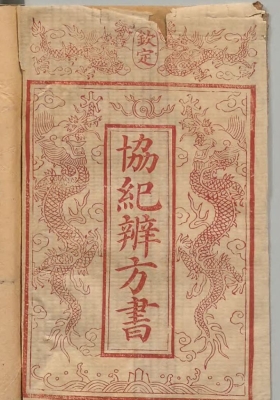 欽定
協紀辨方書